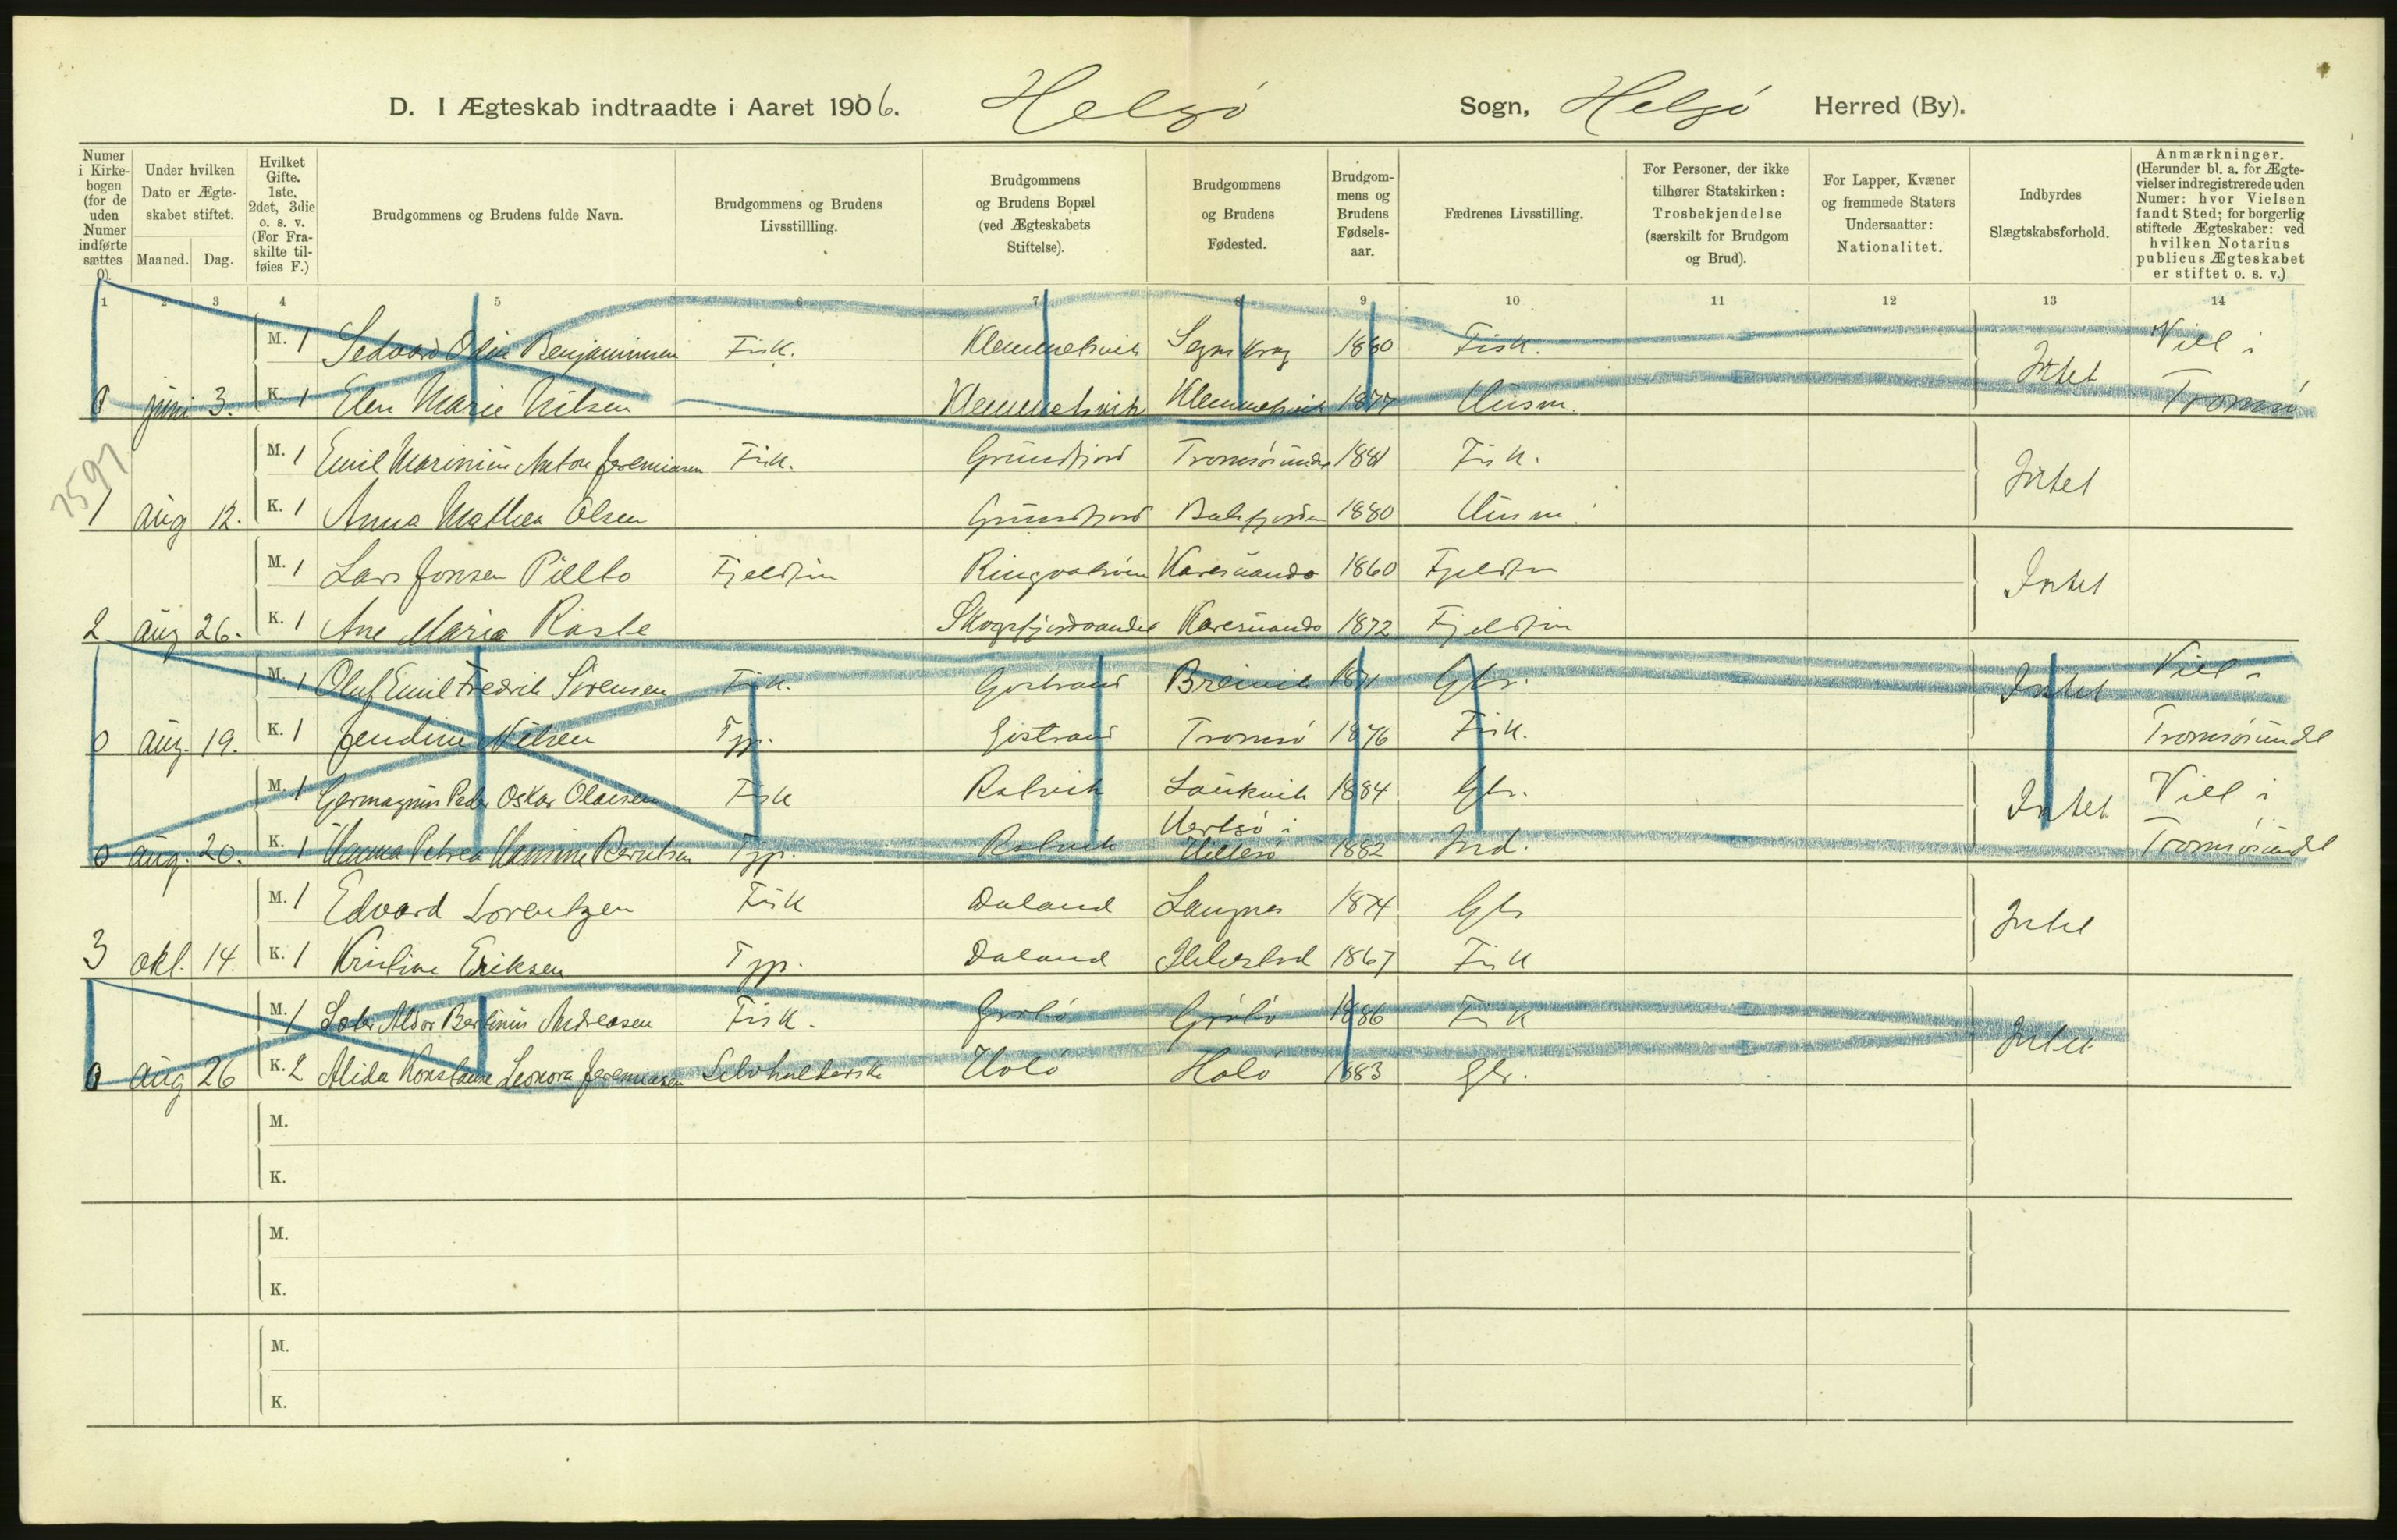 D. I Ægteskab indtraadte i Aaret 1906. Helgö Sogn, Helgö Herred (By).
Numer i Kirkebogen (for de uden Numer indførte sættes 0).
Under hvilken Dato er Ægteskabet stiftet.
Maaned. Dag.
Hvilket Gifte. 1ste, 2det, 3die o. s. v. (For Fraskilte tilføies F.)
Brudgommens og Brudens fulde Navn.
Brudgommens og Brudens Livsstillling.
Brudgommens og Brudens Bopæl (ved Ægteskabets Stiftelse).
Brudgommens og Brudens Fødested.
Brudgommens og Brudens Fødselsaar.
Fædrenes Livsstilling.
For Personer, der ikke tilhører Statskirken: Trosbekjendelse (særskilt for Brudgom og Brud).
For Lapper, Kvæner og fremmede Staters Undersaatter: Nationalitet.
Indbyrdes Slægtskabsforhold.
Anmærkninger. (Herunder bl. a. for Ægtevielser indregistrerede uden Numer: hvor Vielsen fandt Sted; for borgerlig stiftede Ægteskaber: ved hvilken Notarius publicus Ægteskabet er stiftet o. s. v.)
1 2 3 4 5 6 7 8 9 10 11 12 13 14
M. 1 Sedvard Odin Benjaminsen Fisk. 1880 Fisk. Intet Viel i
0 juni 3. K. 1 Elen Marie Nilsen 1877 Husm. Tromsö
7597
M. 1 Emil Marinius Anton Jeremiasen Fisk. Grundfjord Tromsösundet 1881 Fisk. Intet
1 aug 12. K. 1 Anna Mathea Olsen Grundfjord Balsfjorden 1880 Husm.
M. 1 Lars Jonsen Pillto Fjeldfin Ringvatsöen Karesuando 1860 Fjeldfin Intet
2 aug 26. K. 1 Ane Maria Raste Skogsfjordvandet Karesuando 1872 Fjeldfin
M. 1 Oluf Emil Fredrik Sörensen Fisk. Breivik 1871 Gbr. Intet Viel i
0 aug. 19. K. 1 Jendine Nilsen Tjp. Tromsö 1876 Fisk. Tromsösundet
M. 1 Peder Oskar Olaisen Fisk Laukvik 1884 Gbr. Intet Viel i
0 aug. 20. K. 1 Hanna Petrea Hansine Berntsen Tjp. i Hillesö 1882 Ind. Tromsösundet
M. 1 Edvard Lorentzen Fisk Daland Langnes 1874 Gbr Intet
3 okt. 14. K. 1 Kristine Eriksen Tjp. Daland 1867 Fisk
M. 1 Andreasen Fisk. Grötö Grötö 1886 Fisk Intet
0 aug 26 K. 2 Alida Konstanse Leonora Jeremiasen Holö Holö 1883 Gbr.
M.
K.
M.
K.
M.
K.